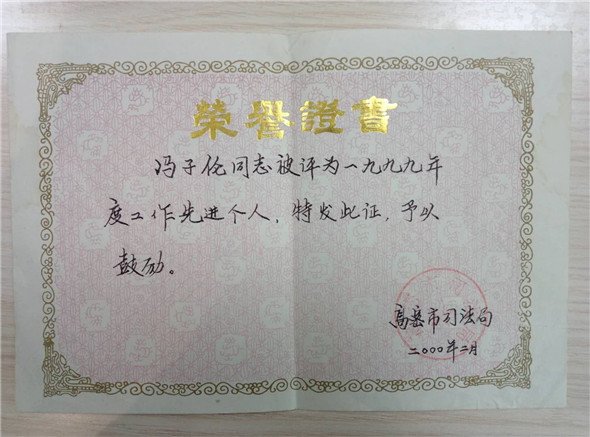 榮譽證書
冯子伦同志被评为一九九九年
度工作先进个人，特发此证，予以
鼓励。
高峰市司法局
二〇〇〇年二月